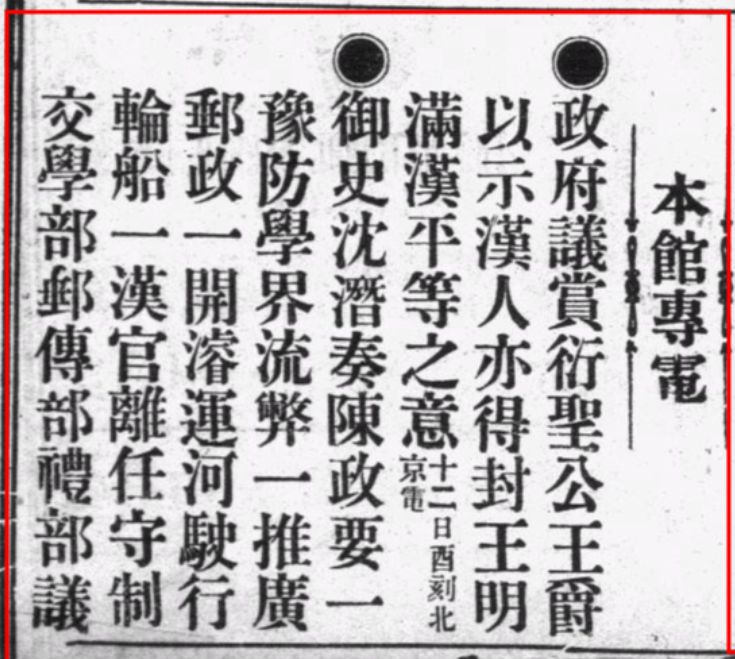 本館專電
●政府議賞衍聖公王爵
以示漢人亦得封王明
滿漢平等之意十二日酉刻北京電
●御史沈潛奏陳政要一
豫防學界流弊一推廣
郵政一開濬運河駛行
輪船一漢官離任守制
交學部郵傳部禮部議